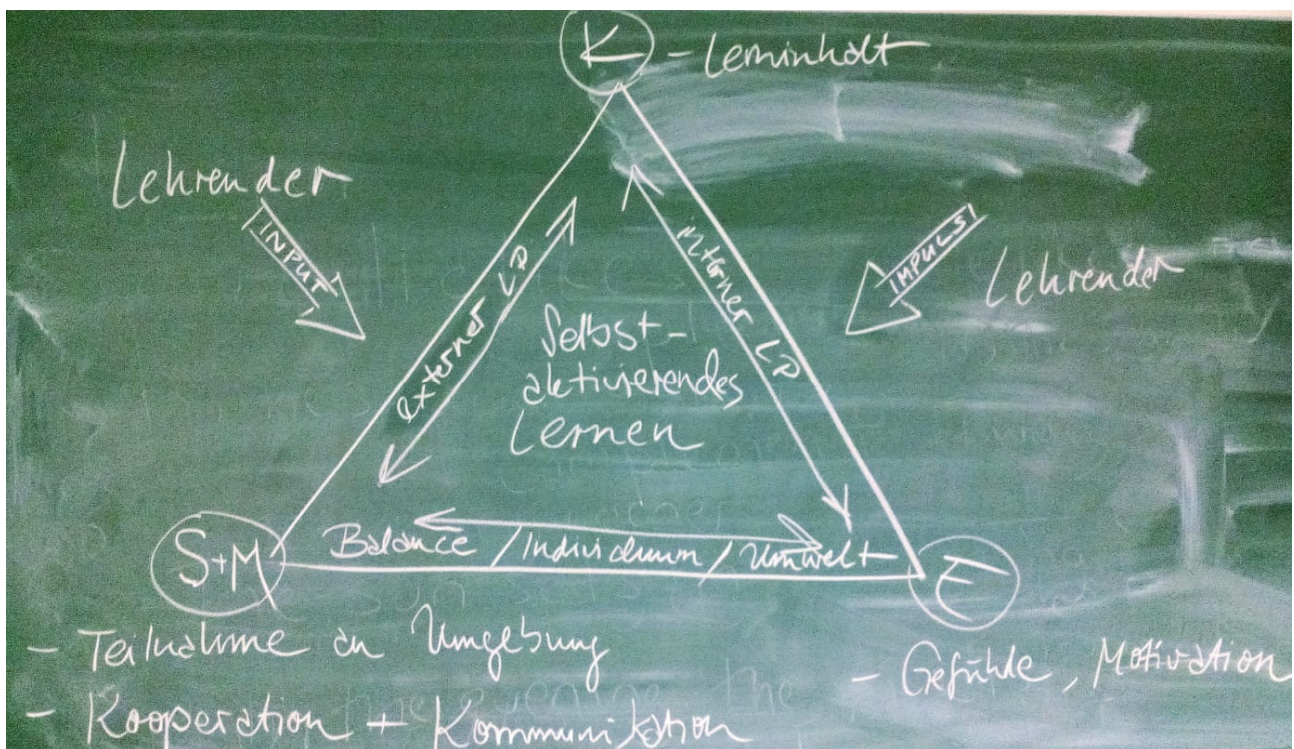 K - Lerninhalt
Lehrender
INPUT
IMPULS
Lehrender
externer LP
interner LP
Selbst-
aktivierendes
Lernen
S+M
Balance / Individuum / Umwelt
E
- Teilnahme an Umgebung
- Gefühle, Motivation
- Kooperation + Kommunikation